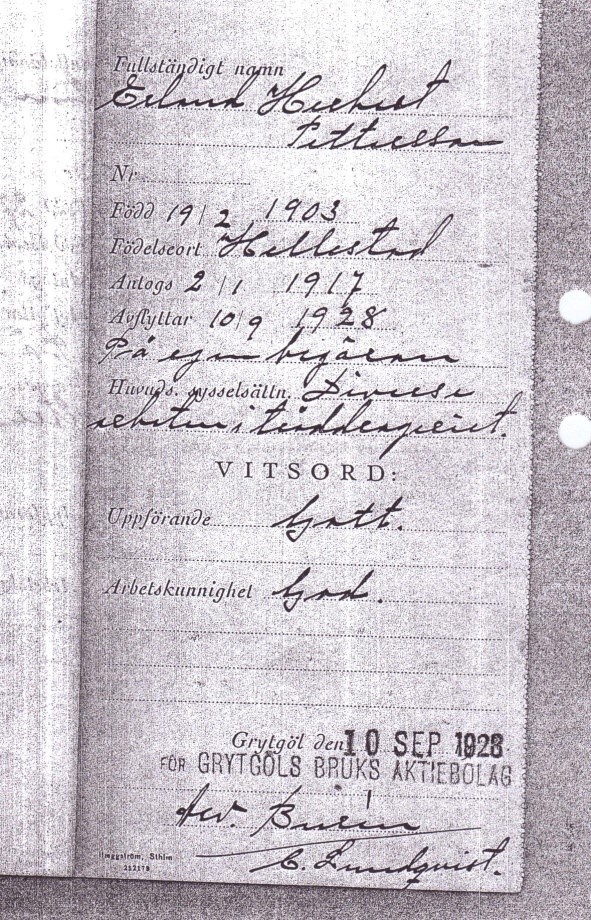 Fullständigt namn
Erland Herbert
Pettersson
Nr
Född 19/2 1903
Födelseort Hellestad
Antogs 2/1 1917
Avflyttar 10/9 1928
På egen begäran
Huvuds. sysselsättn. Diverse
arbeten i tråddrageriet.
VITSORD:
Uppförande Gott.
Arbetskunnighet God.
Grytgöl den 10 SEP 1928
FÖR GRYTGÖLS BRUKS AKTIEBOLAG
Burén
Hæggström, Sthlm
C. Lundqvist.